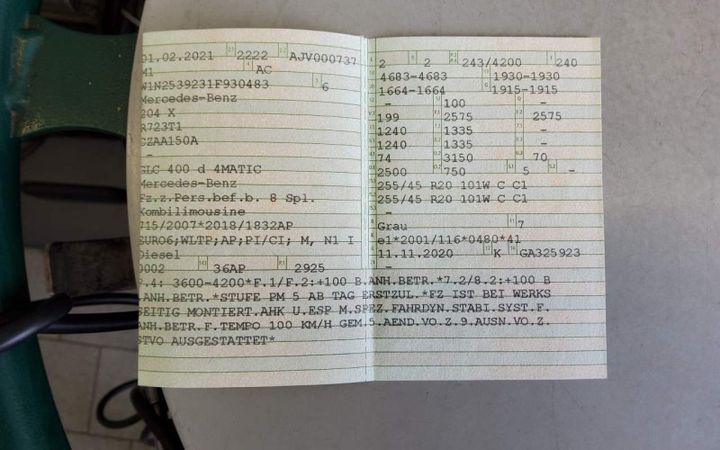 01.02.2021 2222 AJV000737
M1 AC
W1N2539231F930483 6
Mercedes-Benz
204 X
R723T1
CZAA150A
-
GLC 400 d 4MATIC
Mercedes-Benz
Fz.z.Pers.bef.b. 8 Spl.
Kombilimousine
715/2007*2018/1832AP
EURO6;WLTP;AP;PI/CI; M, N1 I
Diesel
0002 36AP 2925
2 2 243/4200 240
4683-4683 1930-1930
1664-1664 1915-1915
- 100 -
199 2575 2575
1240 1335 -
1240 1335 -
74 3150 70
2500 750 5 -
255/45 R20 101W C C1
255/45 R20 101W C C1
-
Grau 7
e1*2001/116*0480*41
11.11.2020 K GA325923
-
P.4: 3600-4200*F.1/F.2:+100 B.ANH.BETR.*7.2/8.2:+100 B
.ANH.BETR.*STUFE PM 5 AB TAG ERSTZUL.*FZ IST BEI WERKS
SEITIG MONTIERT.AHK U.ESP M.SPEZ.FAHRDYN.STABI.SYST.F.
ANH.BETR.F.TEMPO 100 KM/H GEM.5.AEND.VO.Z.9.AUSN.VO.Z.
STVO AUSGESTATTET*